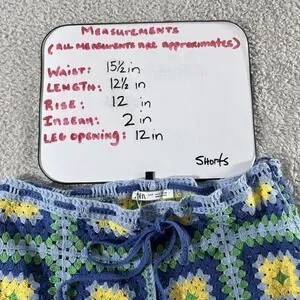 MEASUREMENTS
(ALL MEASUREMENTS ARE APPROXIMATES)
WAIST: 15½ in
LENGTH: 12½ in
RISE: 12 in
INSEAM: 2 in
LEG OPENING: 12 in
SHORTS